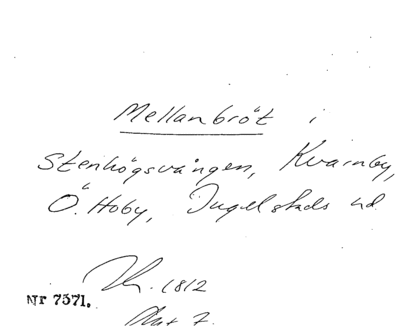 Mellanbröt i
Stenhögsvången, Kvarnby,
Ö. Hoby, Ingelstads hd
1812
Nr 7571.